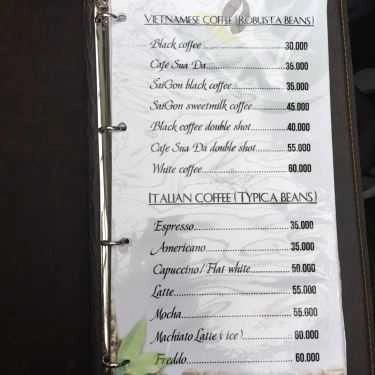 VIETNAMESE COFFEE (ROBUSTA BEANS)
Black coffee 30.000
Cafe Sua Da 35.000
SaiGon black coffee 35.000
SaiGon sweetmilk coffee 45.000
Black coffee double shot 40.000
Cafe Sua Da double shot 55.000
White coffee 60.000
ITALIAN COFFEE (TYPICA BEANS)
Espresso 35.000
Americano 35.000
Capuccino/ Flat white 50.000
Latte 55.000
Mocha 55.000
Machiato Latte ( ice ) 60.000
Freddo 60.000